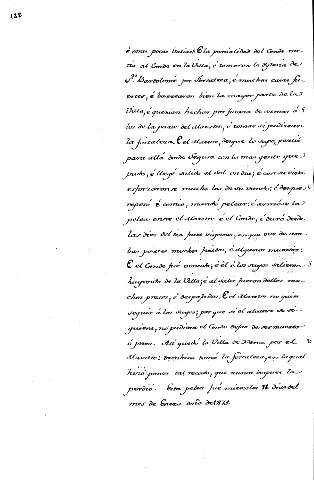 122
é otras pocas Villas. E la parcialidad del Conde me-
tió al Conde en la Villa, é tomaron la Iglesia de
S.n Bartolomé por fortaleza, é muchas casas fu-
ertes, é barrearon bien la mayor parte de la
Villa, é querían hechar por fuerza de varones á
los de la parte del Maestre, é tomar si pudieran
la fortaleza. E el Maestre, desque lo supo, partió
para allá donde Segura con la mas gente que
pudo, é llegó salido el sol un dia; é con su vista
esforzaron se mucho los de su vando; é desque
reposó é comió, mandó pelear: é armóse la
pelea entre el Maestre é el Conde, é duró desde
las diez del dia fasta visperas, en que ovo de am-
bas partes muchos feridos, é algunos muertos:
E el Conde fué vencido, é él é los suyos salieron
huyendo de la Villa; é al salir fueron dellos mu-
chos presos, é despojados. E el Maestre no quiso
seguir á los suyos; por que si el alcance se si-
guiera, no pudiera el Conde dejar de ser muerto
ó preso. Así quedó la Villa de por el
Maestre: tambien tomó la fortaleza, en la qual
hizo poner tal recado, que nunca despues la
perdió. Esta pelea fué miercoles 14 dias del
mes de Enero año de 1471.